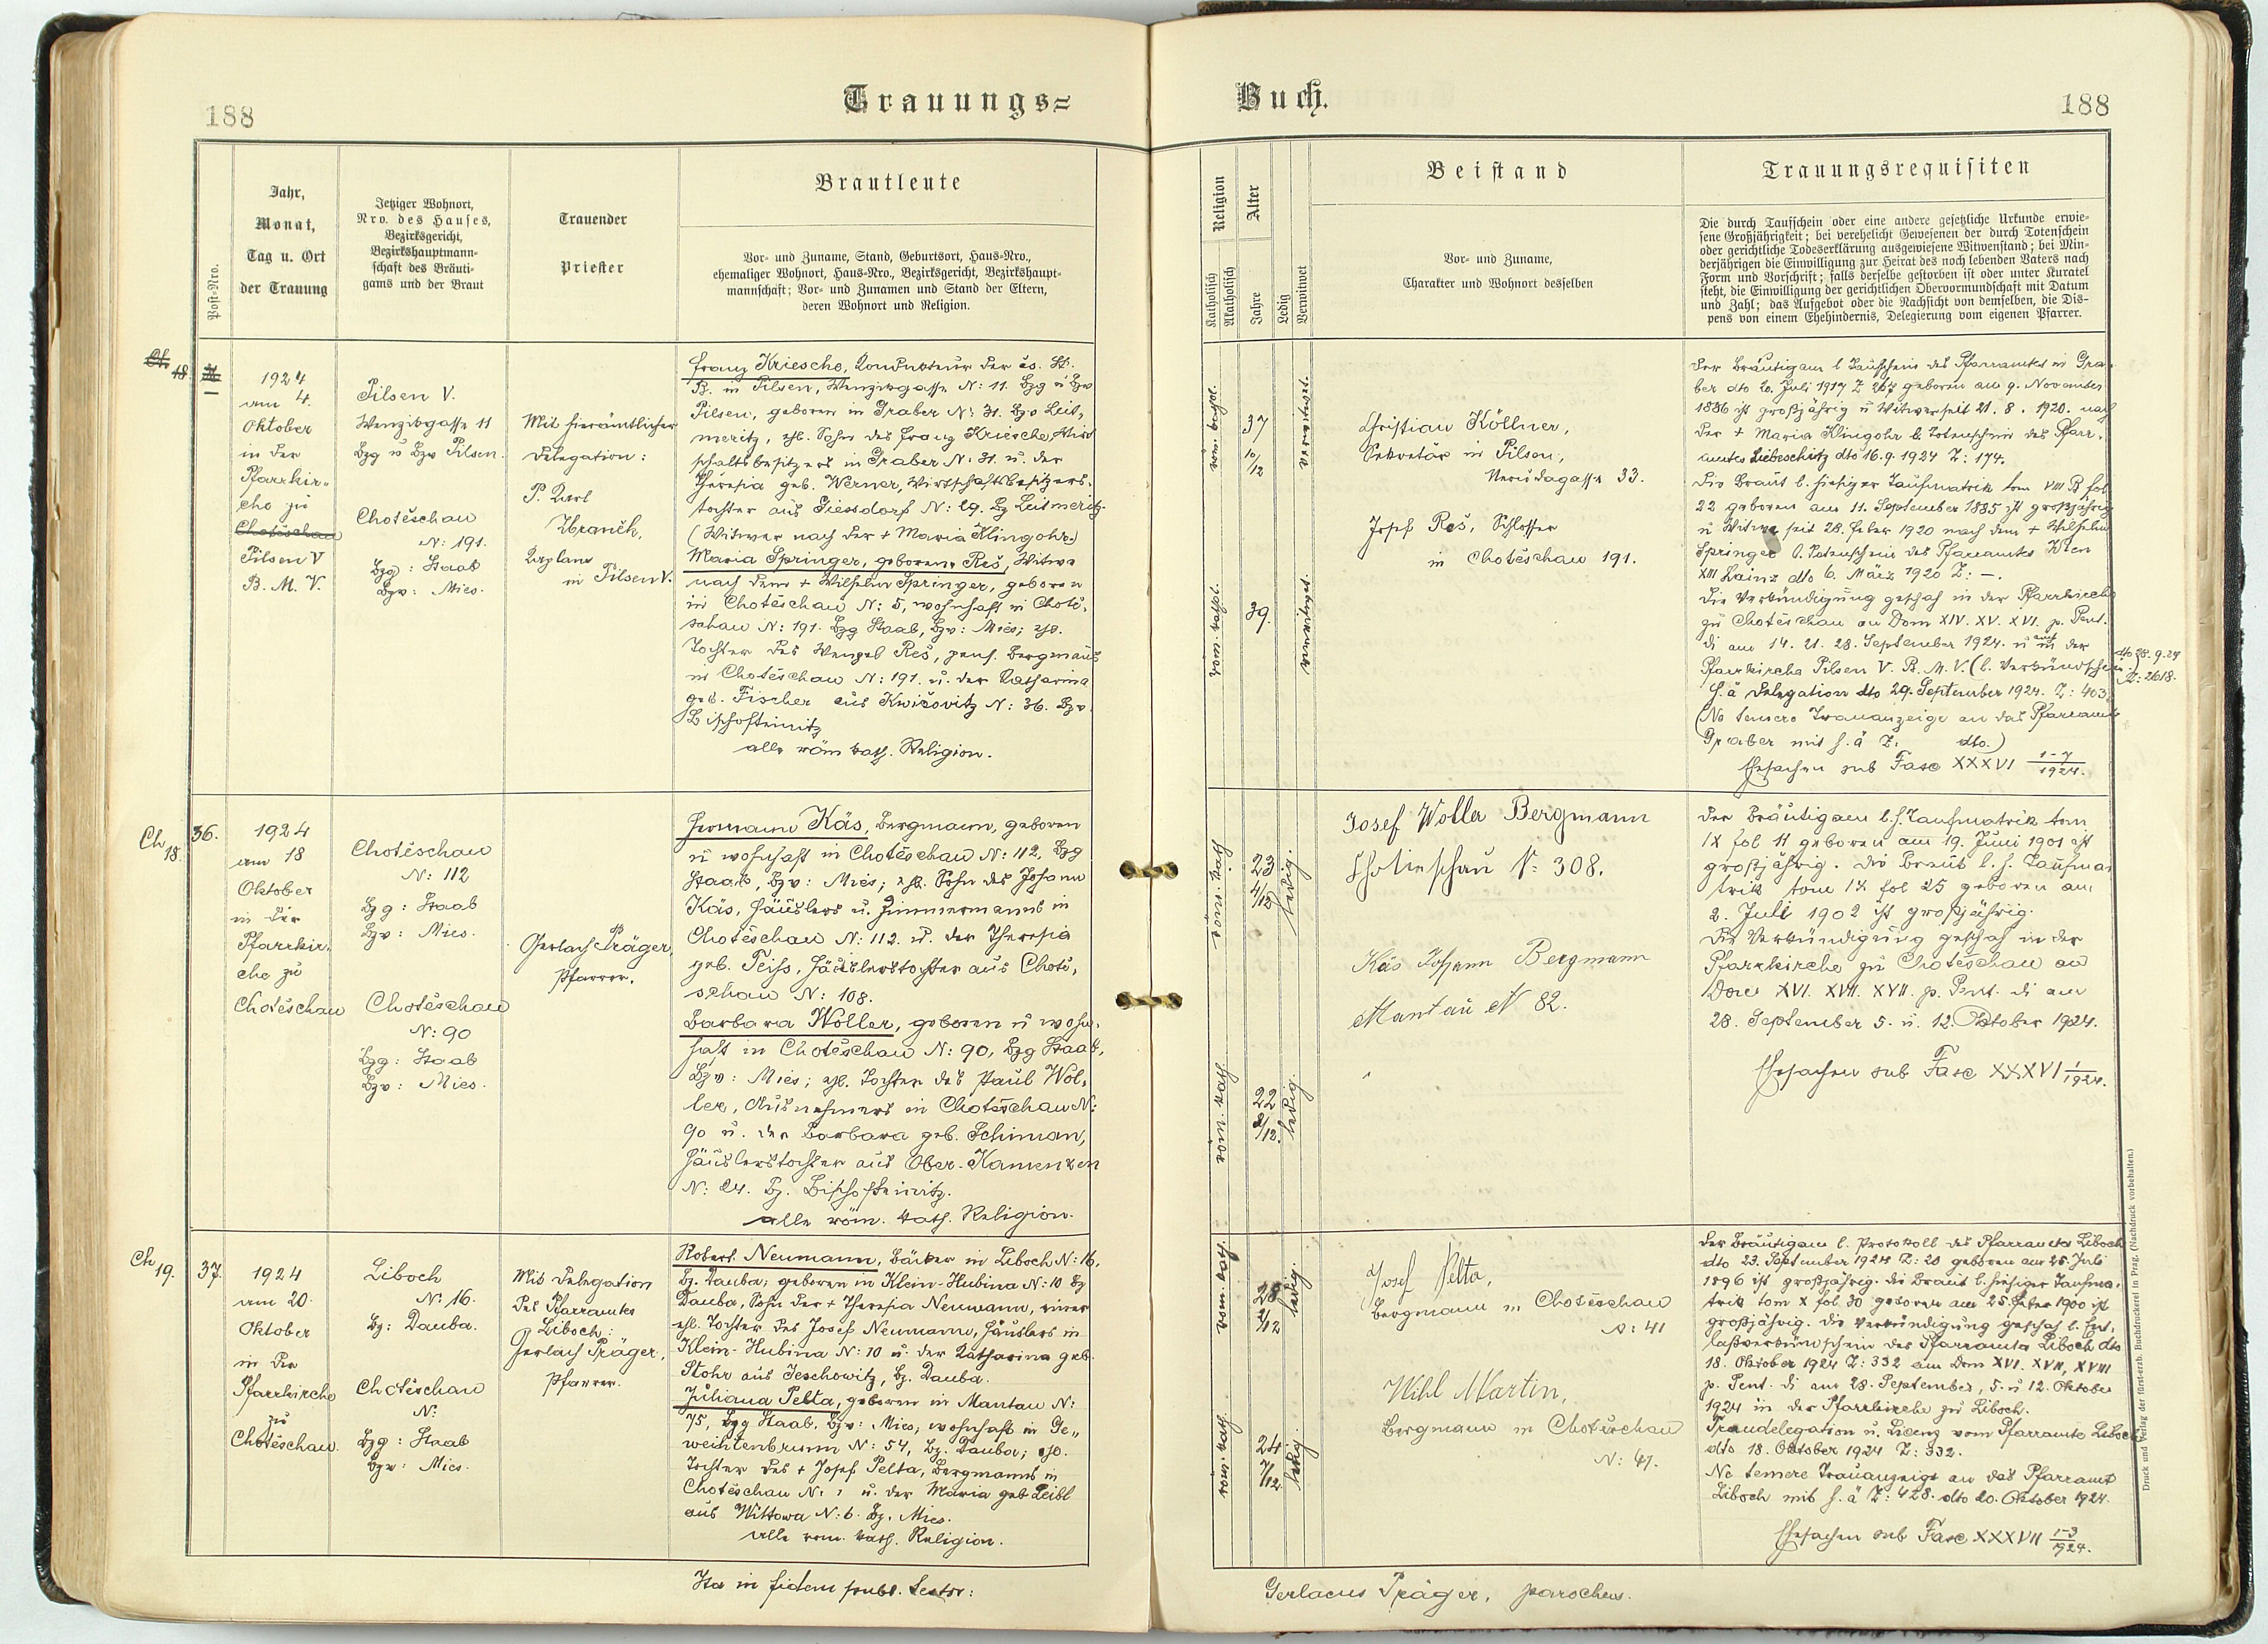 188
Trauungs=
Post-Nro.
Jahr,
Monat,
Tag u. Ort
der Trauung
Jetziger Wohnort,
Nro. des Hauses,
Bezirksgericht,
Bezirkshauptmann-
schaft des Bräuti-
gams und der Braut
Trauender
Priester
Brautleute
Vor- und Zuname, Stand, Geburtsort, Haus-Nro.,
ehemaliger Wohnort, Haus-Nro., Bezirksgericht, Bezirkshaupt-
mannschaft; Vor- und Zunamen und Stand der Eltern,
deren Wohnort und Religion.
Ch.
18.
1924
am 4.
Oktober
in der
Pfarrkir-
che zu
Chotěschau
Pilsen V
B. M. V.
Pilsen V.
Wenzigasse 11
Bzg u Bzv Pilsen.
Chotěschau
N: 191.
Bzg: Staab
Bzv: Mies.
Mit hierämtlicher
Delegation:
P. Karl
Zbraněk,
Kaplan
in Pilsen V.
Franz Kriesche, Kondukteur der čs. St.
B. in Pilsen, Wenzigasse N: 11. Bzg u Bzv
Pilsen, geboren in Graber N: 31. Bzv Leit,
meritz, ehl. Sohn des Franz Kriesche, Wirt
schaftsbesitzers in Graber N: 31. u. der
Theresia geb. Werner, Wirtschaftsbesitzers-
tochter aus Giessdorf N: 29. Bz Leitmeritz.
(Witwer nach der + Maria Klingohr.)
Maria Springer, geborene Reš, Witwe
nach dem + Wilhelm Springer, geboren
in Chotěschau N: 5, wohnhaft in Chotě,
schau N: 191. Bzg Staab, Bzv: Mies; ehl.
Tochter des Wenzel Reš, pens. Bergmanns
in Chotěschau N: 191. u. der Katharina
geb. Fischer aus Kwičovitz N: 36. Bzv.
Bischofteinitz
alle röm kath. Religion.
Ch
18.
36.
1924
am 18
Oktober
in der
Pfarrkir-
che zu
Chotěschau
Chotěschau
N: 112
Bzg: Staab
Bzv: Mies.
Chotěschau
N: 90
Bzg: Staab
Bzv: Mies.
Gerlach Präger,
Pfarrer.
Hermann Käs, Bergmann, geboren
u wohnhaft in Chotěschau N: 112, Bzg
Staab, Bzv: Mies; ehl. Sohn des Johann
Käs, Häuslers u. Zimmermanns in
Chotěschau N: 112. u. der Theresia
geb. Teiss, Häuslerstochter aus Chotě,
schau N: 108.
Barbara Woller, geboren u wohn-
haft in Chotěschau N: 90, Bzg Staab,
Bzv: Mies; ehl. Tochter des Paul Wol,
ler, Ausnehmers in Chotěschau N:
90 u. der Barbara geb. Schiman,
Häuslerstochter aus Ober-Kamenzen
N: 24. Bz. Bischofteinitz.
alle röm. kath. Religion.
Ch
19.
37.
1924
am 20.
Oktober
in der
Pfarrkirche
zu
Chotěschau.
Liboch
N: 16.
Bz: Dauba.
Chotěschau
N:
Bzg: Staab
Bzv: Mies.
Mit Delegation
des Pfarramtes
Liboch:
Gerlach Präger,
Pfarrer.
Robert Neumann, Bäcker in Liboch N: 16,
Bz. Dauba; geboren in Klein-Hubina N: 10 Bz
Dauba, Sohn der + Theresia Neumann, einer
ehl. Tochter des Josef Neumann, Häuslers in
Klein-Hubina N: 10 u. der Katharina geb.
Stohr aus Jeschowitz, Bz. Dauba.
Juliana Pelta, geboren in Mantau N:
75, Bzg Staab, Bzv: Mies, wohnhaft in Ge„
weihtenbrunn N: 54, Bz. Dauba; ehl.
Tochter des + Josef Pelta, Bergmanns in
Chotěschau N: u. der Maria geb Leibl
aus Wittowa N: 6. Bz. Mies.
alle röm. kath. Religion.
Ita in fidem publ. testor:
Buch.
188
Religion
Katholisch
Akatholisch
Alter
Jahre
Ledig
Verwitwet
Beistand
Vor- und Zuname,
Charakter und Wohnort desselben
Trauungsrequisiten
Die durch Taufschein oder eine andere gesetzliche Urkunde erwie-
sene Großjährigkeit; bei verehelicht Gewesenen der durch Totenschein
oder gerichtliche Todeserklärung ausgewiesene Witwenstand; bei Min-
derjährigen die Einwilligung zur Heirat des noch lebenden Vaters nach
Form und Vorschrift; falls derselbe gestorben ist oder unter Kuratel
steht, die Einwilligung der gerichtlichen Obervormundschaft mit Datum
und Zahl; das Aufgebot oder die Nachsicht von demselben, die Dis-
pens von einem Ehehindernis, Delegierung vom eigenen Pfarrer.
röm. kathol.
37
10/12
verwitwet.
röm. kathol.
39.
verwitwet.
Christian Köllner,
Sekretär in Pilsen,
Nerudagasse 33.
Josef Reš, Schlosser
in Chotěschau 191.
Der Bräutigam l Taufschein des Pfarramtes in Gra-
ber dto 20. Juli 1917 Z 267 geboren am 9. November
1886 ist großjährig u Witwer seit 21. 8. 1920. nach
der + Maria Klingohr l. Totenschein des Pfarr-
amtes Liebeschitz dto 16. 9. 1924 Z: 174.
Die Braut l. hiesiger Taufmatrik tom VIII B fol
22 geboren am 11. September 1885 ist großjährig
u Witwe seit 28. Feber 1920 nach dem + Wilhelm
Springer l. Totenschein des Pfarramtes Wien
XIII Lainz dto 6. März 1920 Z: —.
Die Verkündigung geschah in der Pfarrkirche
zu Chotěschau an Dom XIV. XV. XVI. p. Pent.
di am 14. 21. 28. September 1924. u auch in der
Pfarrkirche Pilsen V. B. M. V. (l. Verkündschein.)
dto 28. 9. 24
N: 2618.
h. ä Delegation dto 29. September 1924. Z: 403.
(Ne temere Trauanzeige an das Pfarramt
Graber mit h. ä Z. dto.)
Ehesachen sub Fasc XXXVI 1-7/1924.
röm. kath
23
4/12
ledig.
röm. kath.
22
2/12.
ledig.
Josef Woller Bergmann
Chotieschau N: 308.
Käs Johann Bergmann
Mantau N 82.
Der Bräutigam l. h. Taufmatrik tom
IX fol 11 geboren am 19. Juni 1901 ist
großjährig. Die Braut l. h. Taufma-
trik tom IX fol 25 geboren am
2. Juli 1902 ist großjährig.
Die Verkündigung geschah in der
Pfarrkirche zu Chotěschau an
Dom XVI. XVII. XVII. p. Pent. di am
28. September 5. u. 12. Oktober 1924.
Ehesachen sub Fasc XXXVI 1/1924.
röm. kath.
28
2/12
ledig.
röm. kath.
24
7/12.
ledig.
Josef Pelta,
Bergmann in Chotěschau
N: 41
Wihl Martin,
Bergmann in Chotěschau
N: 41.
Der Bräutigam l. Protokoll des Pfarramtes Liboch
dto 23. September 1924 Z: 20 geboren am 25. Juli
1896 ist großjährig. Die Braut l. hiesiger Taufma-
trik tom X fol 30 geboren am 25. Feber 1900 ist
großjährig. Die Verkündigung geschah l. Ent,
laßverkündschein des Pfarramtes Liboch dto
18. Oktober 1924 Z: 332 am Dom XVI. XVII, XVIII
p. Pent. di am 28. September, 5. u 12. Oktober
1924 in der Pfarrkirche zu Liboch.
Traudelegation u. Lizenz vom Pfarramte Liboch
dto 18. Oktober 1924 Z: 332.
Ne temere Trauanzeige an das Pfarramt
Liboch mit h. ä Z: 428. dto 20. Oktober 1924.
Ehesachen sub Fasc XXXVII 1-3/1924.
Gerlacus Präger, parochus.
Druck und Verlag der fürsterzb. Buchdruckerei in Prag. (Nachdruck vorbehalten.)